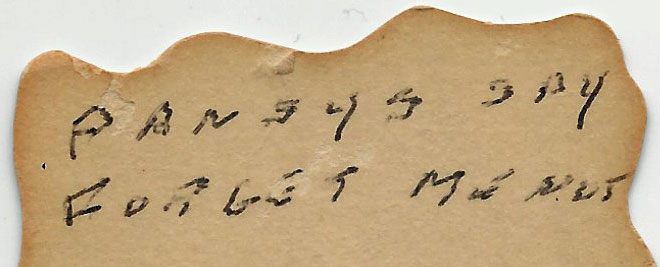 PANSYS SAY
FORGET ME NUT